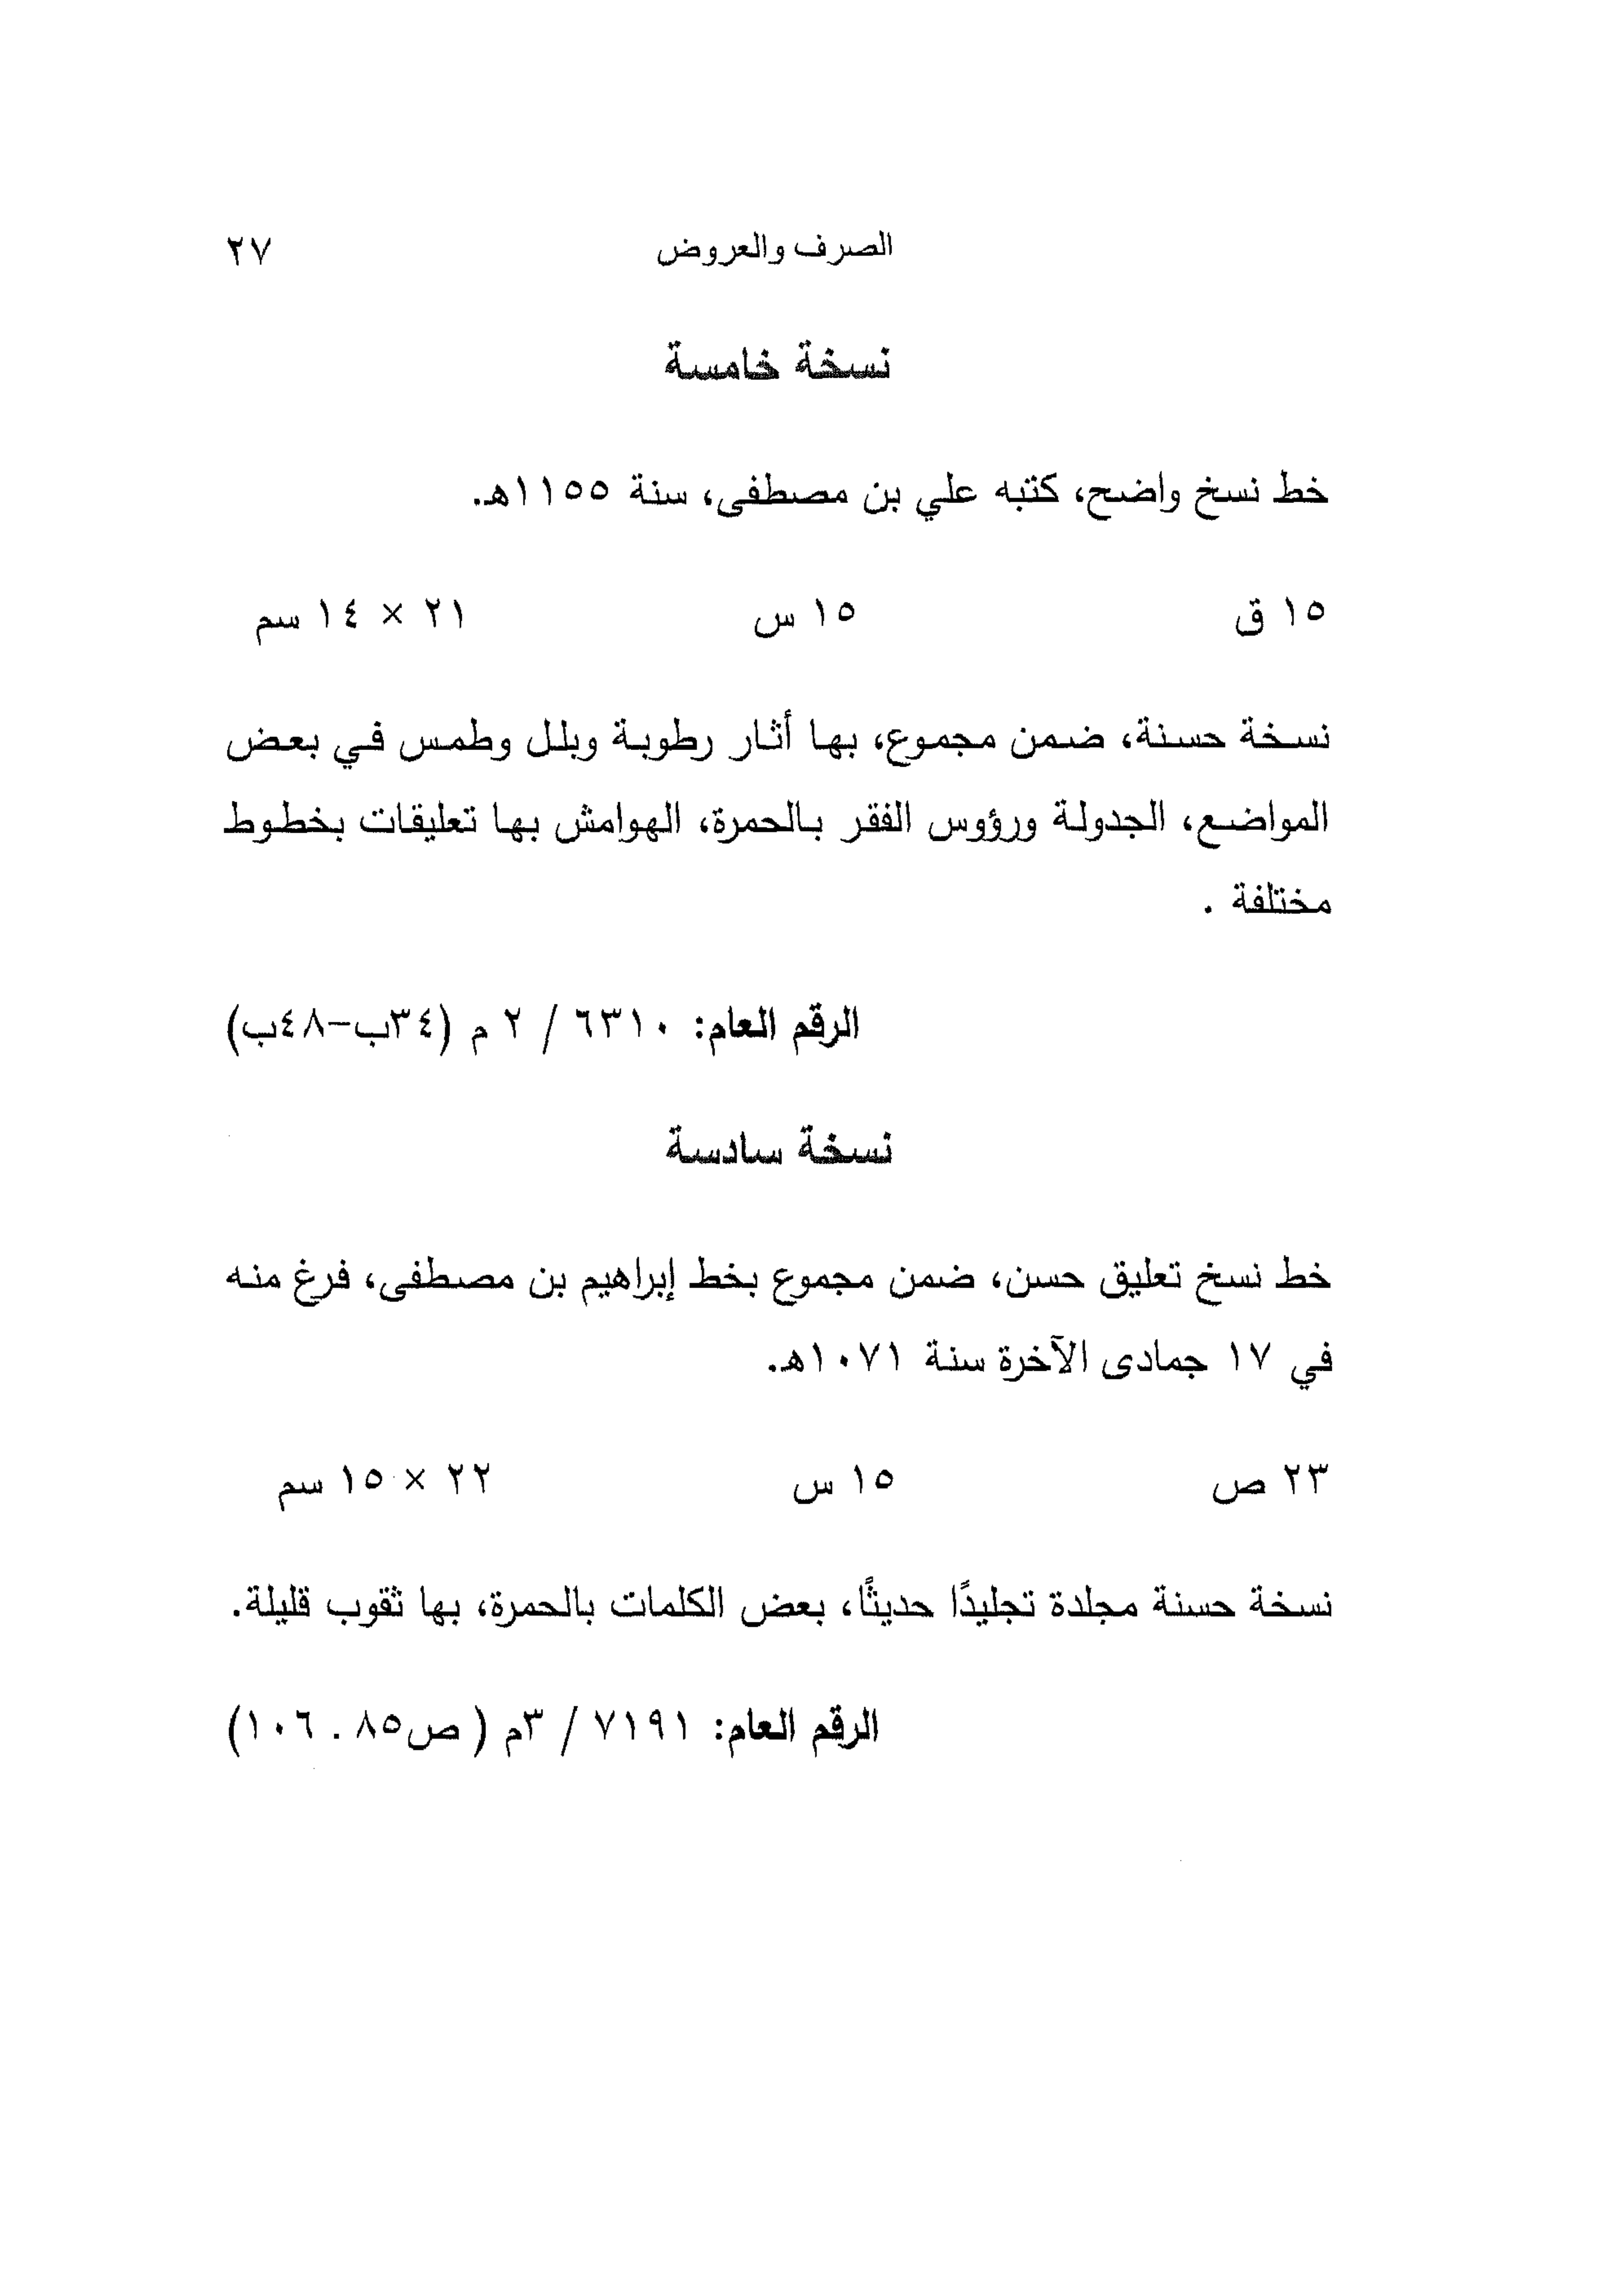 الصرف والعروض ٢٧
نسخة خامسة
خط نسخ واضح، كتبه علي بن مصطفى، سنة ١١٥٥هـ.
١٥ ق ١٥ س ٢١ × ١٤ سم
نسخة حسنة، ضمن مجموع، بها أثار رطوبة وبلل وطمس في بعض
المواضع، الجدولة ورؤوس الفقر بالحمرة، الهوامش بها تعليقات بخطوط
مختلفة .
الرقم العام: ٦٣١٠ / ٢ م (٣٤ب-٤٨ب)
نسخة سادسة
خط نسخ تعليق حسن، ضمن مجموع بخط إبراهيم بن مصطفى، فرغ منه
في ١٧ جمادى الآخرة سنة ١٠٧١هـ.
٢٣ ص ١٥ س ٢٢ × ١٥ سم
نسخة حسنة مجلدة تجليدًا حديثًا، بعض الكلمات بالحمرة، بها ثقوب قليلة.
الرقم العام: ٧١٩١ / ٣م ( ص٨٥ . ١٠٦)